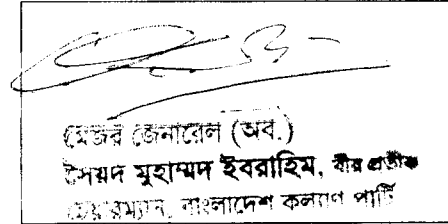 মেজর জেনারেল (অব.)
সৈয়দ মুহাম্মদ ইবরাহিম, বীর প্রতীক
চেয়ারম্যান, বাংলাদেশ কল্যাণ পার্টি